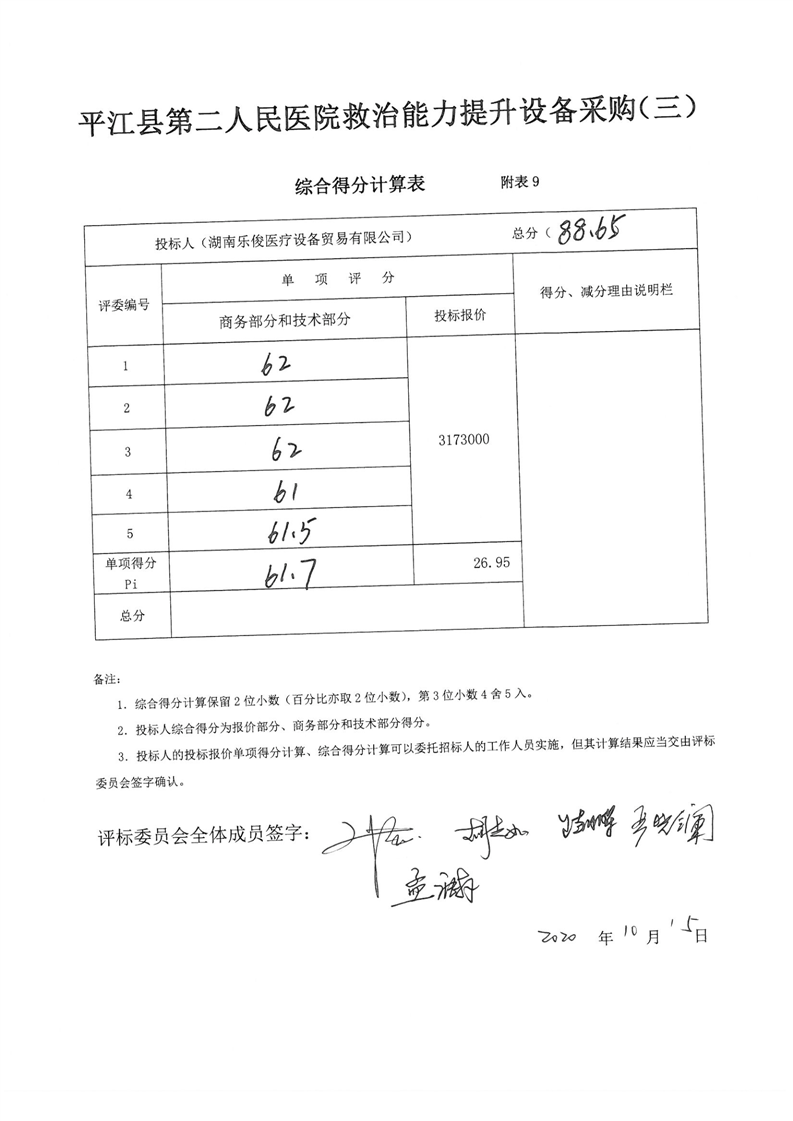 平江县第二人民医院救治能力提升设备采购(三)
综合得分计算表 附表9
投标人（湖南乐俊医疗设备贸易有限公司） 总分（ 88.65
评委编号 单 项 评 分 得分、减分理由说明栏
商务部分和技术部分 投标报价
1 62
2 62
3 62 3173000
4 61
5 61.5
单项得分 Pi 61.7 26.95
总分
备注：
1．综合得分计算保留2位小数（百分比亦取2位小数），第3位小数4舍5入。
2．投标人综合得分为报价部分、商务部分和技术部分得分。
3．投标人的投标报价单项得分计算、综合得分计算可以委托招标人的工作人员实施，但其计算结果应当交由评标
委员会签字确认。
评标委员会全体成员签字：
2020 年 10 月 15 日